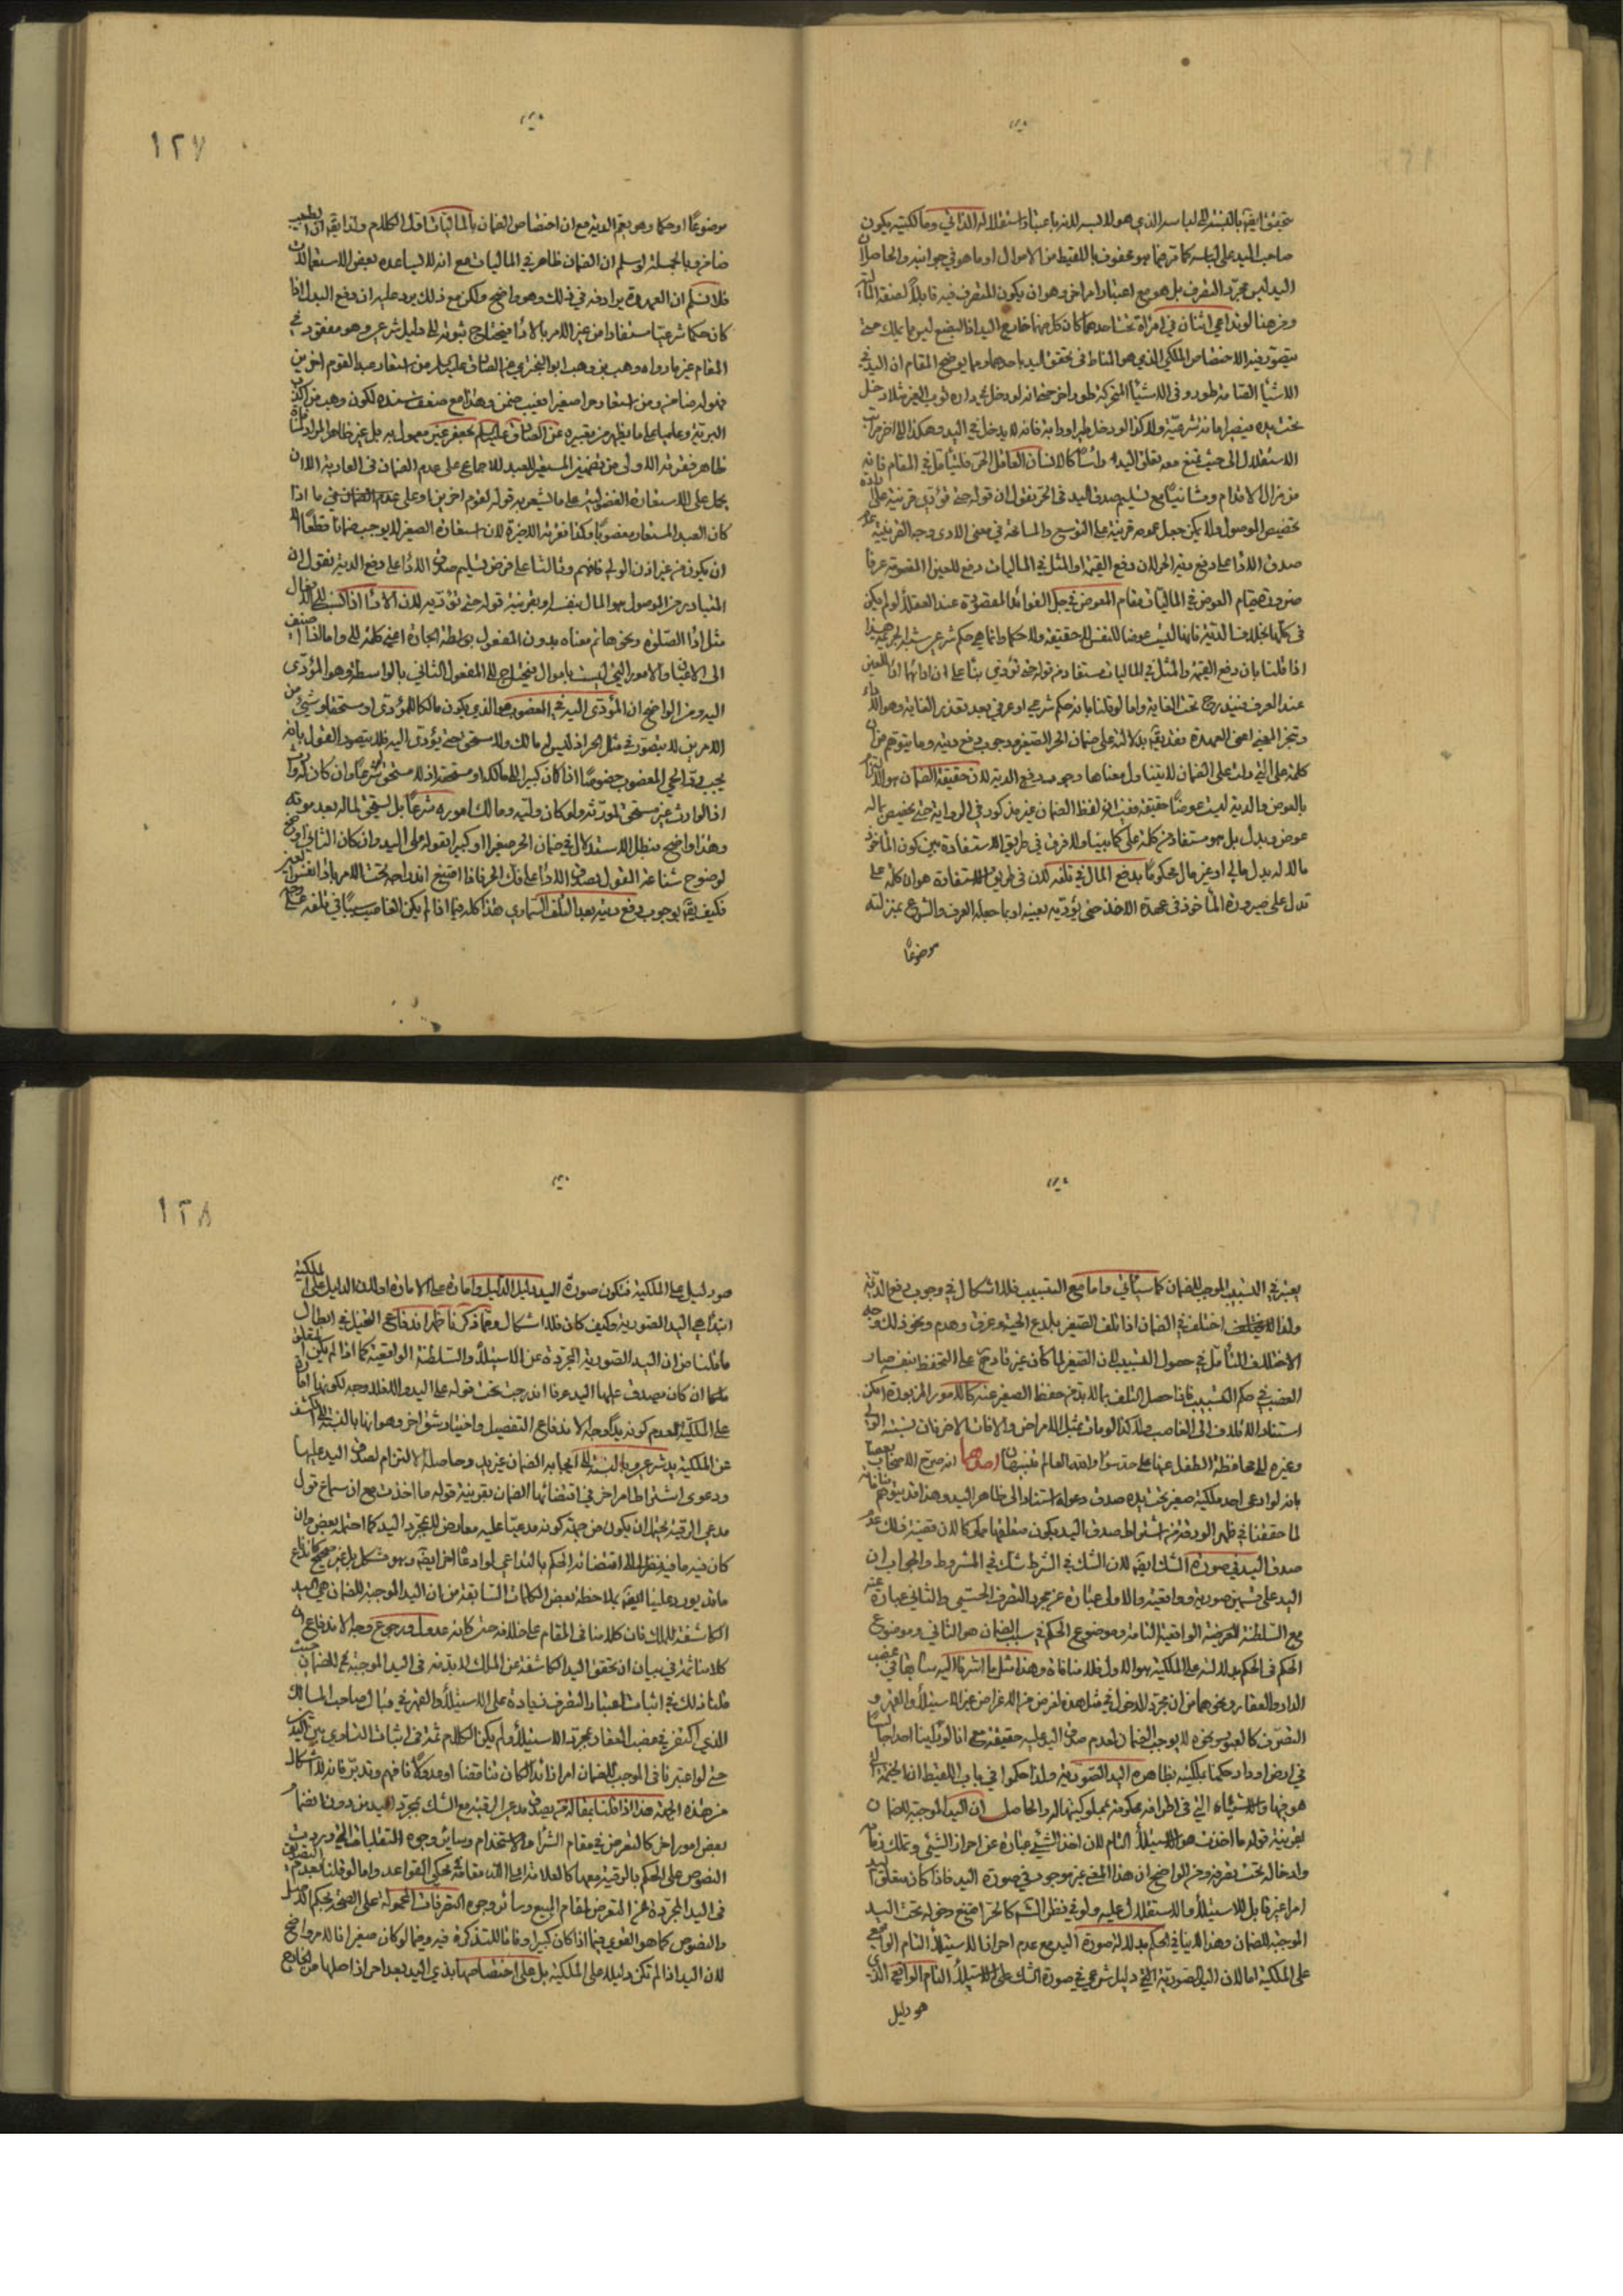 يتحقق ايضا بالنسبة الى لباسه الذي هو لابسه لانه باعتبار استقلاله الذاتي وما لكيته يكون
صاحب اليد على لباسه كما ترجمنا هو محفوف باللقيط من الاموال او ما هو في جوانبه والحاصل ان
اليد ليس مجرد التصرف بل هو مع اعتبار امر اخر وهو ان يكون المتصرف فيه قابلا لصفة
ومن هنا لو تداعى اثنان في امراة تحت احدهما كان كل منهما خارج اليد اذ البضع ليس مما يملك حتى
يتصور فيه الاختصاص الملكي الذي هو المناط في تحقق اليد باحدهما ومما يوضح المقام ان اليد في
الاشياء الصامتة طور وفي الاشياء المتحركة طور اخر حيث انه لو دخل في داره ثوب الغير مثلا دخل
تحت يده فيصير امانة شرعية ولا كذا لو دخل طير او دابة فانه لا يدخل في اليد وهكذا الى اخر مراتب
الاستقلال الى حيث يمتنع معه تعلق اليد به راسا كالانسان العاقل الحر فليتامل في المقام فانه
من مزال الاقدام وثانيا مع تسليم صدق اليد في الحر نقول ان قوله حتى تؤدي قرينة على
تخصيص الموصول ولا يمكن جعل عمومه قرينة على التوسع والمسامحة في معنى الاداء وجه القرينية عدم
صدق الاداء على دفع دية الحر لان دفع القيمة او المثل في الماليات دفع للعين المغصوبة عرفا
ضرورة قيام العوض في الماليات مقام المعوض في جل الفوائد المقصودة عند العقلاء لو لم يكن
في كلها بخلاف الدية فانها ليست عوضا للنفس لا حقيقة ولا حكما وانما هي حكم شرعي شبه الجريمة هذا
اذا قلنا بان دفع القيمة والمثل في الماليات مستفاد من قوله حتى تؤدي بناء على ان اداءهما اداء للعين
عند العرف فيندرج تحت الغاية واما لو قلنا بانه حكم شرعي او عرفي بعد تعذر الغاية وهو الاداء
وتنجز المغيى اعني العهدة فقد يقال بدلالته على ضمان الحر الصغير ووجوب دفع ديته وما يتوهم من ان
كلمة على التي دلت على الضمان لا يتناول معناها وجوب دفع الدية لان حقيقة الضمان هو الالتزام
بالعوض والدية ليست عوضا حقيقة ففيه ان لفظ الضمان غير مذكور في الرواية حتى يختص بما له
عوض وبدل بل هو مستفاد من كلمة على كما بينا ولا فرق في طريق الاستفادة بين كون الماخوذ
مالا له بدل مالي او غير مال محكوما بدفع المال في تلفه لان طريق الاستفادة هو ان كلمة على
تدل على صيرورة الماخوذ في عهدة الاخذ حتى يؤديه بعينه او بما جعله العرف والشرع بمنزلته
موضوعا
١٢٧
موضوعا او حكما وهو يعم الدية مع ان اختصاص الضمان بالماليات اول الكلام ولذا يقال ان الطبيب
ضامن وبالجملة لو سلم ان الضمان ظاهر في الماليات مع انه لا يساعده بعض الاستعمالات
فلا نسلم ان العهدة يرادفه في ذلك وهو واضح ولكن مع ذلك يرد عليه ان دفع البدل اذا
كان حكما شرعيا مستفادا من غير الامر بالاداء يحتاج ثبوته الى دليل شرعي وهو مفقود في
المقام غير ما رواه وهب بن وهب ابو البختري عن الصادق عليه السلم من استعار عبدا لقوم اخرين
فهو له ضامن ومن استعار حرا صغيرا فعيب ضمن وهذا مع ضعف سنده لكون وهب من اكذب
البرية وعليه ما يظهر من تفسيره عن الصادق عليه السلم بجعفر غير معمول به بل غير ظاهر المراد لمنافاة
ظاهر فقرته الاولى من تضمين المستعير للعبد للاجماع على عدم الضمان في العارية الا ان
يحمل على الاستعارة الفضولية على ما يشعر به قوله لقوم اخرين او على عدم الضمان في ما اذا
كان العبد المستعار مغصوبا وكذا فقرته الاخيرة لان استعارة الصغير لا يوجب ضمانا قطعا الا
ان يكون من غير اذن الولي فافهم وثالثا على فرض تسليم صدق الاداء على دفع الدية نقول ان
المتبادر من الموصول هو المال بنفسه او بقرينة قوله حتى تؤديه لان الاداء اذا نسب الى الافعال
مثل اداء الصلوة ونحوها تم معناه بدون المفعول بواسطة الجارة اعني كلمة الى واما اذا اضيف
الى الاعيان والامور التي ليست باموال فيحتاج الى المفعول الثاني بالواسطة وهو المؤدى
اليه ومن الواضح ان المؤدى اليه في المغصوب هو الذي يكون مالكا للمؤدى او مستحقا وشيئ من
الامرين لا يتصور في مثل الحر اذ ليس له مالك ولا مستحق حتى يؤدى اليه فلا يتصور القول بانه
يجب رد الحي المغصوب خصوصا اذا كان كبيرا الى مالكه او مستحقه اذ لا مستحق له شرعا وان كان له وارث
اذ الوارث غير مستحق لمورثه ولو كان وليه ومالك اموره شرعا بل يستحق لماله بعد موته
وهذا واضح فبطل الاستدلال في ضمان الحر صغيرا او كبيرا بقوله على اليد وان كان الثاني اوضح
لوضوح شناعة القول بصدق الاداء على فك الحر فاذا امتنع اندراجه تحت الامر باداء نفسه
فكيف يقال بوجوب دفع ديته بعد التلف السماوي هذا كله فيما اذا لم يكن الغاصب سببا في تلفه على وجه
يعتبر في التسبيب الموجب للضمان كما سياتي واما مع التسبيب فلا اشكال في وجوب دفع الدية
ولذا اختلف في الضمان اذا تلف الصغير بلدغ الحية وغرق وهدم ونحو ذلك وجه
الاختلاف التامل في حصول التسبيب لان الصغير لما كان غير قادر على التحفظ بنفسه صار
الغصب في حكم التسبيب فاذا حصل التلف بما لا بد من حفظ الصغير عنه كالامور المزبورة امكن
استناد الاتلاف الى الغاصب ولا كذا لو مات بمثل الامراض والافات الاخر فان نسبته الولي
وغيره الى محافظة الطفل عنها على حد سواء والله العالم تنبيهان احدهما انه صرح الاصحاب بعضا
بانه لو ادعى احد ملكية صغير تحت يده صدق دعواه استنادا الى ظاهر اليد وهذا قد يتوهم منافاته
لما حققنا في ظهر الورقة من اشتراط صدق اليد بكون متعلقها ملكا لان قضية ذلك عدم
صدق اليد في صورة الشك ايضا لان الشك في الشرط شك في المشروط والجواب ان
اليد على قسمين صورية وواقعية والاولى عبارة عن مجرد التصرف الحسي والثاني عبارة عنه
مع السلطنة العرفية الواقعية التامة وموضوع الحكم في سبب الضمان هو الثاني وموضوع
الحكم في الحكم بدلالته على الملكية هو الاول فلا منافاة وهذا مثل ما اشرنا اليه سابقا في غصب
الدار والعقار ونحوهما من ان مجرد الدخول في مثل هذه لغرض من الاغراض عن الاستيلاء والقهر و
التصرف كالعبور ونحوه لا يوجب الضمان لعدم صدق اليد عليه حقيقة مع انا لو راينا احدا جالسا
في ارض او دار حكمنا بملكيته بظاهر اليد الصورية ولذا حكموا في باب اللقيط ان الخيمة التي
هو فيها والاشياء التي في اطرافه محكومة بمملوكيتها له والحاصل ان اليد الموجبة للضمان
بقرينة قوله ما اخذت هو الاستيلاء التام لان اخذ الشيئ عبارة عن احراز الشيئ وتملك زمامه
وادخاله تحت تصرفه ومن الواضح ان هذا المعنى غير موجود في صورة اليد فاذا كان متعلق اليد
امرا غير قابل للاستيلاء والاستقلال عليه ولو في نظر الشارع كالحر امتنع دخوله تحت اليد
الموجبة للضمان وهذا لا ينافي الحكم بدلالة صورة اليد مع عدم احراز الاستيلاء التام الواقعي
على الملكية اما لان اليد الصورية التي دليل شرعي في صورة الشك على الاستيلاء التام الواقعي الذي
هو دليل
١٢٨
هو دليل على الملكية فتكون صورة اليد دليل الدليل وامارة على الامارة او لان الدليل على الملكية
ابتداء هي اليد الصورية وكيف كان فلا اشكال ومما ذكرنا ظهر اندفاع التخيل في ابطال
ما قلنا من ان اليد الصورية المجردة عن الاستيلاء والسلطنة الواقعية كما اذا لم يكن المتعلق
ملكا ان كان يصدق عليها اليد عرفا اندرجت تحت قوله على اليد والا فلا وجه لكونها امارة
على الملكية لعدم كونه يدا وجه الاندفاع التفصيل واختيار شق اخر وهو انها بالنسبة الى الكشف
عن الملكية يد شرعي وبالنسبة الى ايجابه الضمان غير يد وحاصله الالتزام لصدق اليد عليها
ودعوى اشتراط امر اخر في اقتضائها الضمان بقرينة قوله ما اخذت مع ان سماع قول
مدعي الرقية يحتمل ان يكون من جهة كونه مدعيا بلا معارض لا لمجرد اليد كما احتمله بعض وان
كان فيه ما فيه نظرا الى اقتضائه الحكم بالتداعي لو ادعاه اخر ايضا وهو مشكل بل غير صحيح كاندفاع
ما قد يورد علينا ايضا بملاحظة بعض الكلمات السابقة من ان اليد الموجبة للضمان هي اليد
الكاشفة للملك فان كلامنا في المقام على خلافه حيث كانه عدول ورجوع وجه الاندفاع ان
كلامنا ثمة في بيان ان تحقق اليد الكاشفة عن الملك لا بد منه في اليد الموجبة للضمان حيث
قلنا ذلك في اثبات اعتبار التصرف زيادة على الاستيلاء والقهر في قبال صاحب المسالك
الذي اكتفى في غصب العقار بمجرد الاستيلاء ولم يكن الكلام ثمة في اثبات التساوي بين اليدين
حتى لو اعتبرنا في الموجب للضمان امرا زائدا كان تناقضا او عدولا فافهم وتدبر فانه لا اشكال
من هذه الجهة هذا اذا قلنا بمقالة من يصدق مدعي الرقية مع الشك بمجرد اليد من دون انضمام
بعض امور اخر كالتعرض في مقام الشراء والاستخدام وسائر وجوه التقلبات التي وردت
النصوص على الحكم بالرقية معها كالعلامة اعلى الله مقامه في محكي القواعد واما لو قلنا بعدم التصديق
في اليد المجردة عن التعرض لمقام البيع وسائر وجوه التصرفات المحمولة على الصحة بحكم الاصل
والنصوص كما هو القوي فيما اذا كان كبيرا وفاقا للتذكرة فيه وفيما لو كان صغيرا فالامر واضح
لان اليد اذا لم تكن دليلا على الملكية بل على اختصاصها بذي اليد بعد احراز اصلها من الخارج